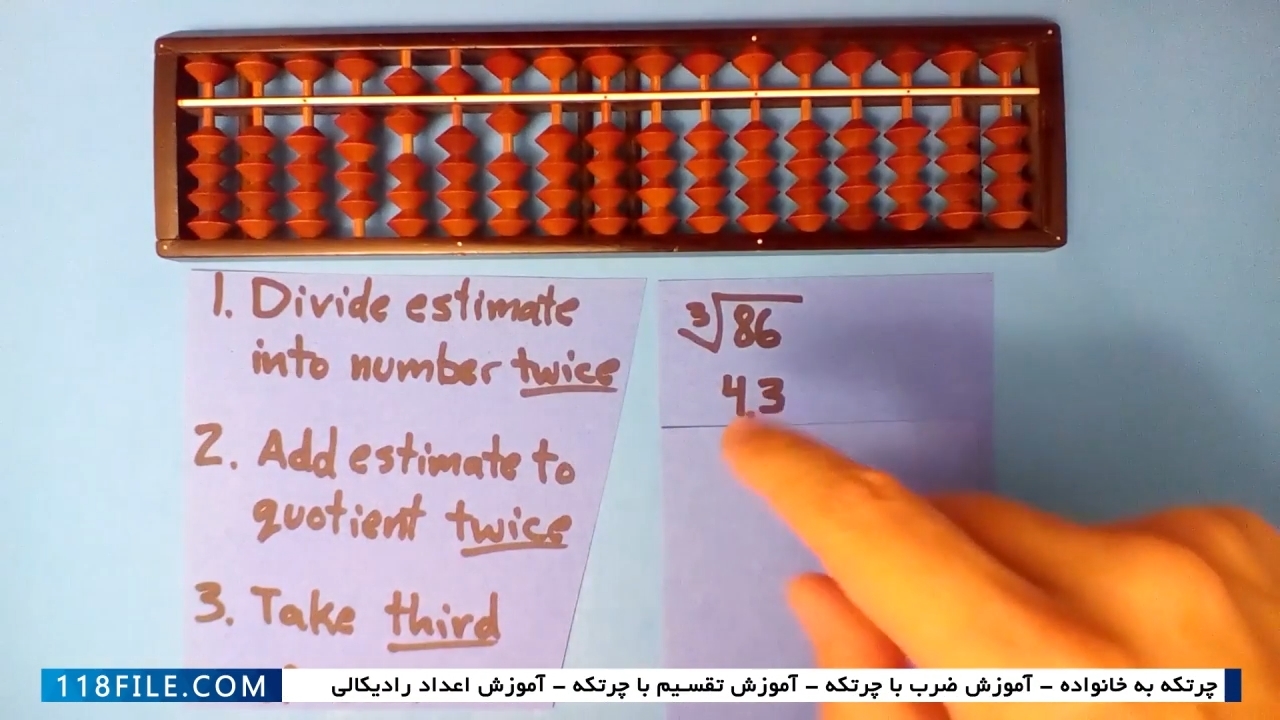 1. Divide estimate
into number twice
2. Add estimate to
quotient twice
3. Take third
∛86
4.3
118FILE.COM
چرتکه به خانواده - آموزش ضرب با چرتکه - آموزش تقسیم با چرتکه - آموزش اعداد رادیکالی